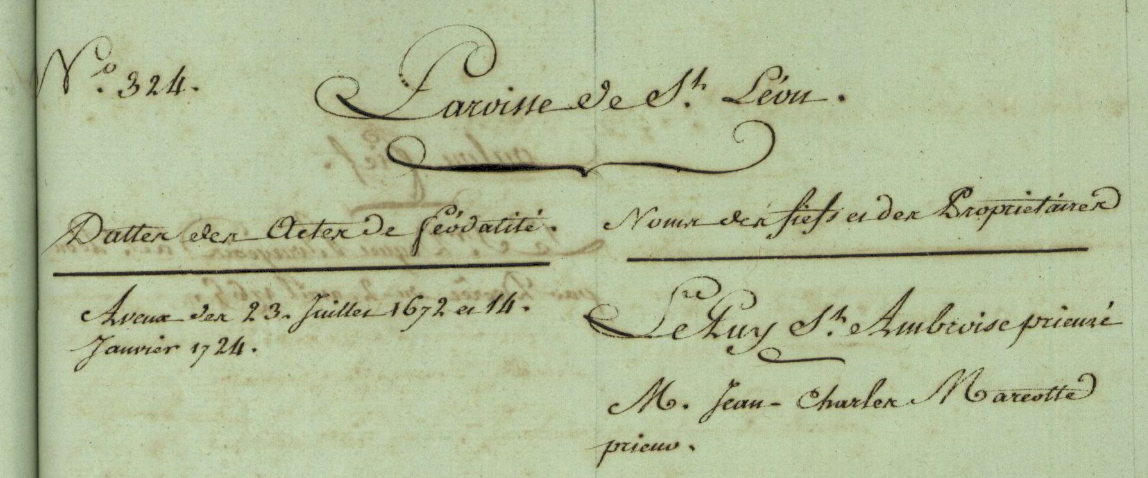 N.o 324.
Paroisse de St. Léon.
Dattes des Actes de féodalité.
Noms des fiefs et des Propriétaires
Aveux des 23. Juillet 1672 et 14.
Janvier 1724.
Le Puy St. Ambroise prieuré
M. Jean-Charles Mareotte
prieur.